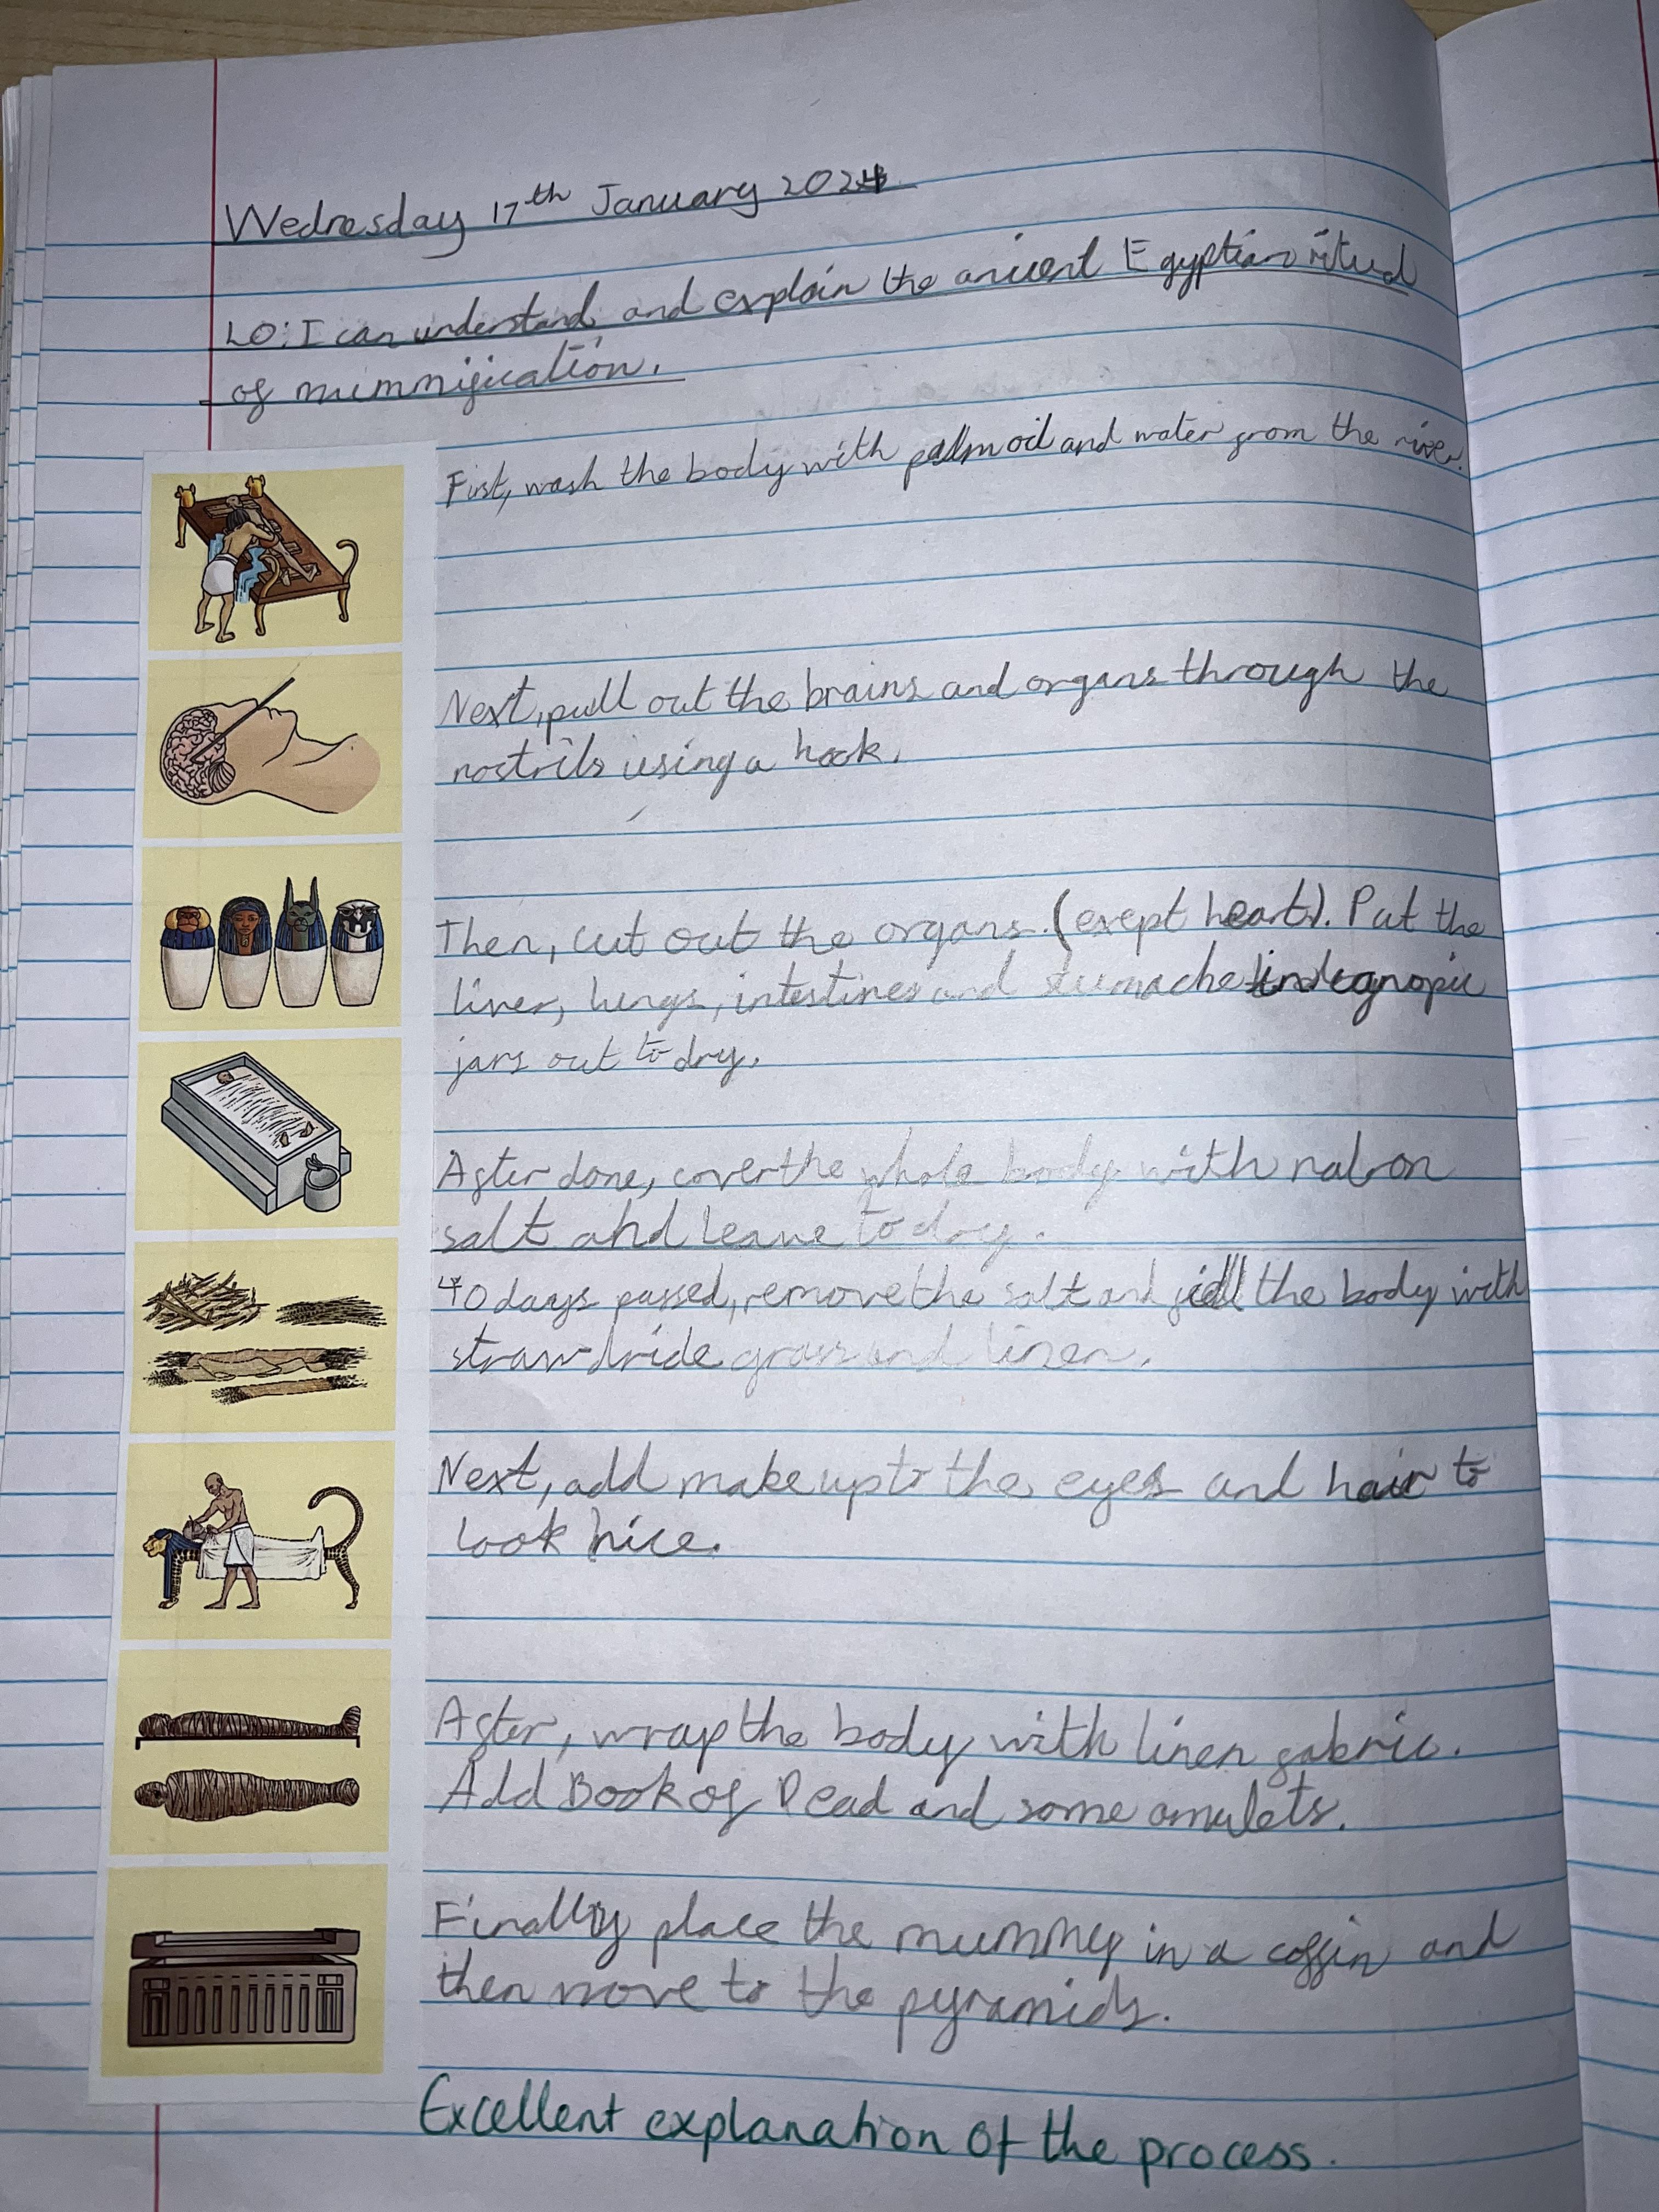 Wednesday 17th January 2024
LO: I can understand and explain the anicent Egyptian ritual
of mummification.
First, wash the body with palm oil and water from the river.
Next, pull out the brains and organs through the
nostrils using a hook.
Then, cut out the organs. (exept heart). Put the
liver, lungs, intestines and stumache in
jars out to dry.
After done, cover the whole body with natron
salt and leave to dry.
40 days passed, remove the salt and fill the body with
straw dride grass and linen.
Next, add make up to the eyes and hair to
look nice.
After, wrap the body with linen fabric.
Add Book of Dead and some amulets.
Finally place the mummy in a coffin and
then move to the pyramids.
Excellent explanation of the process.